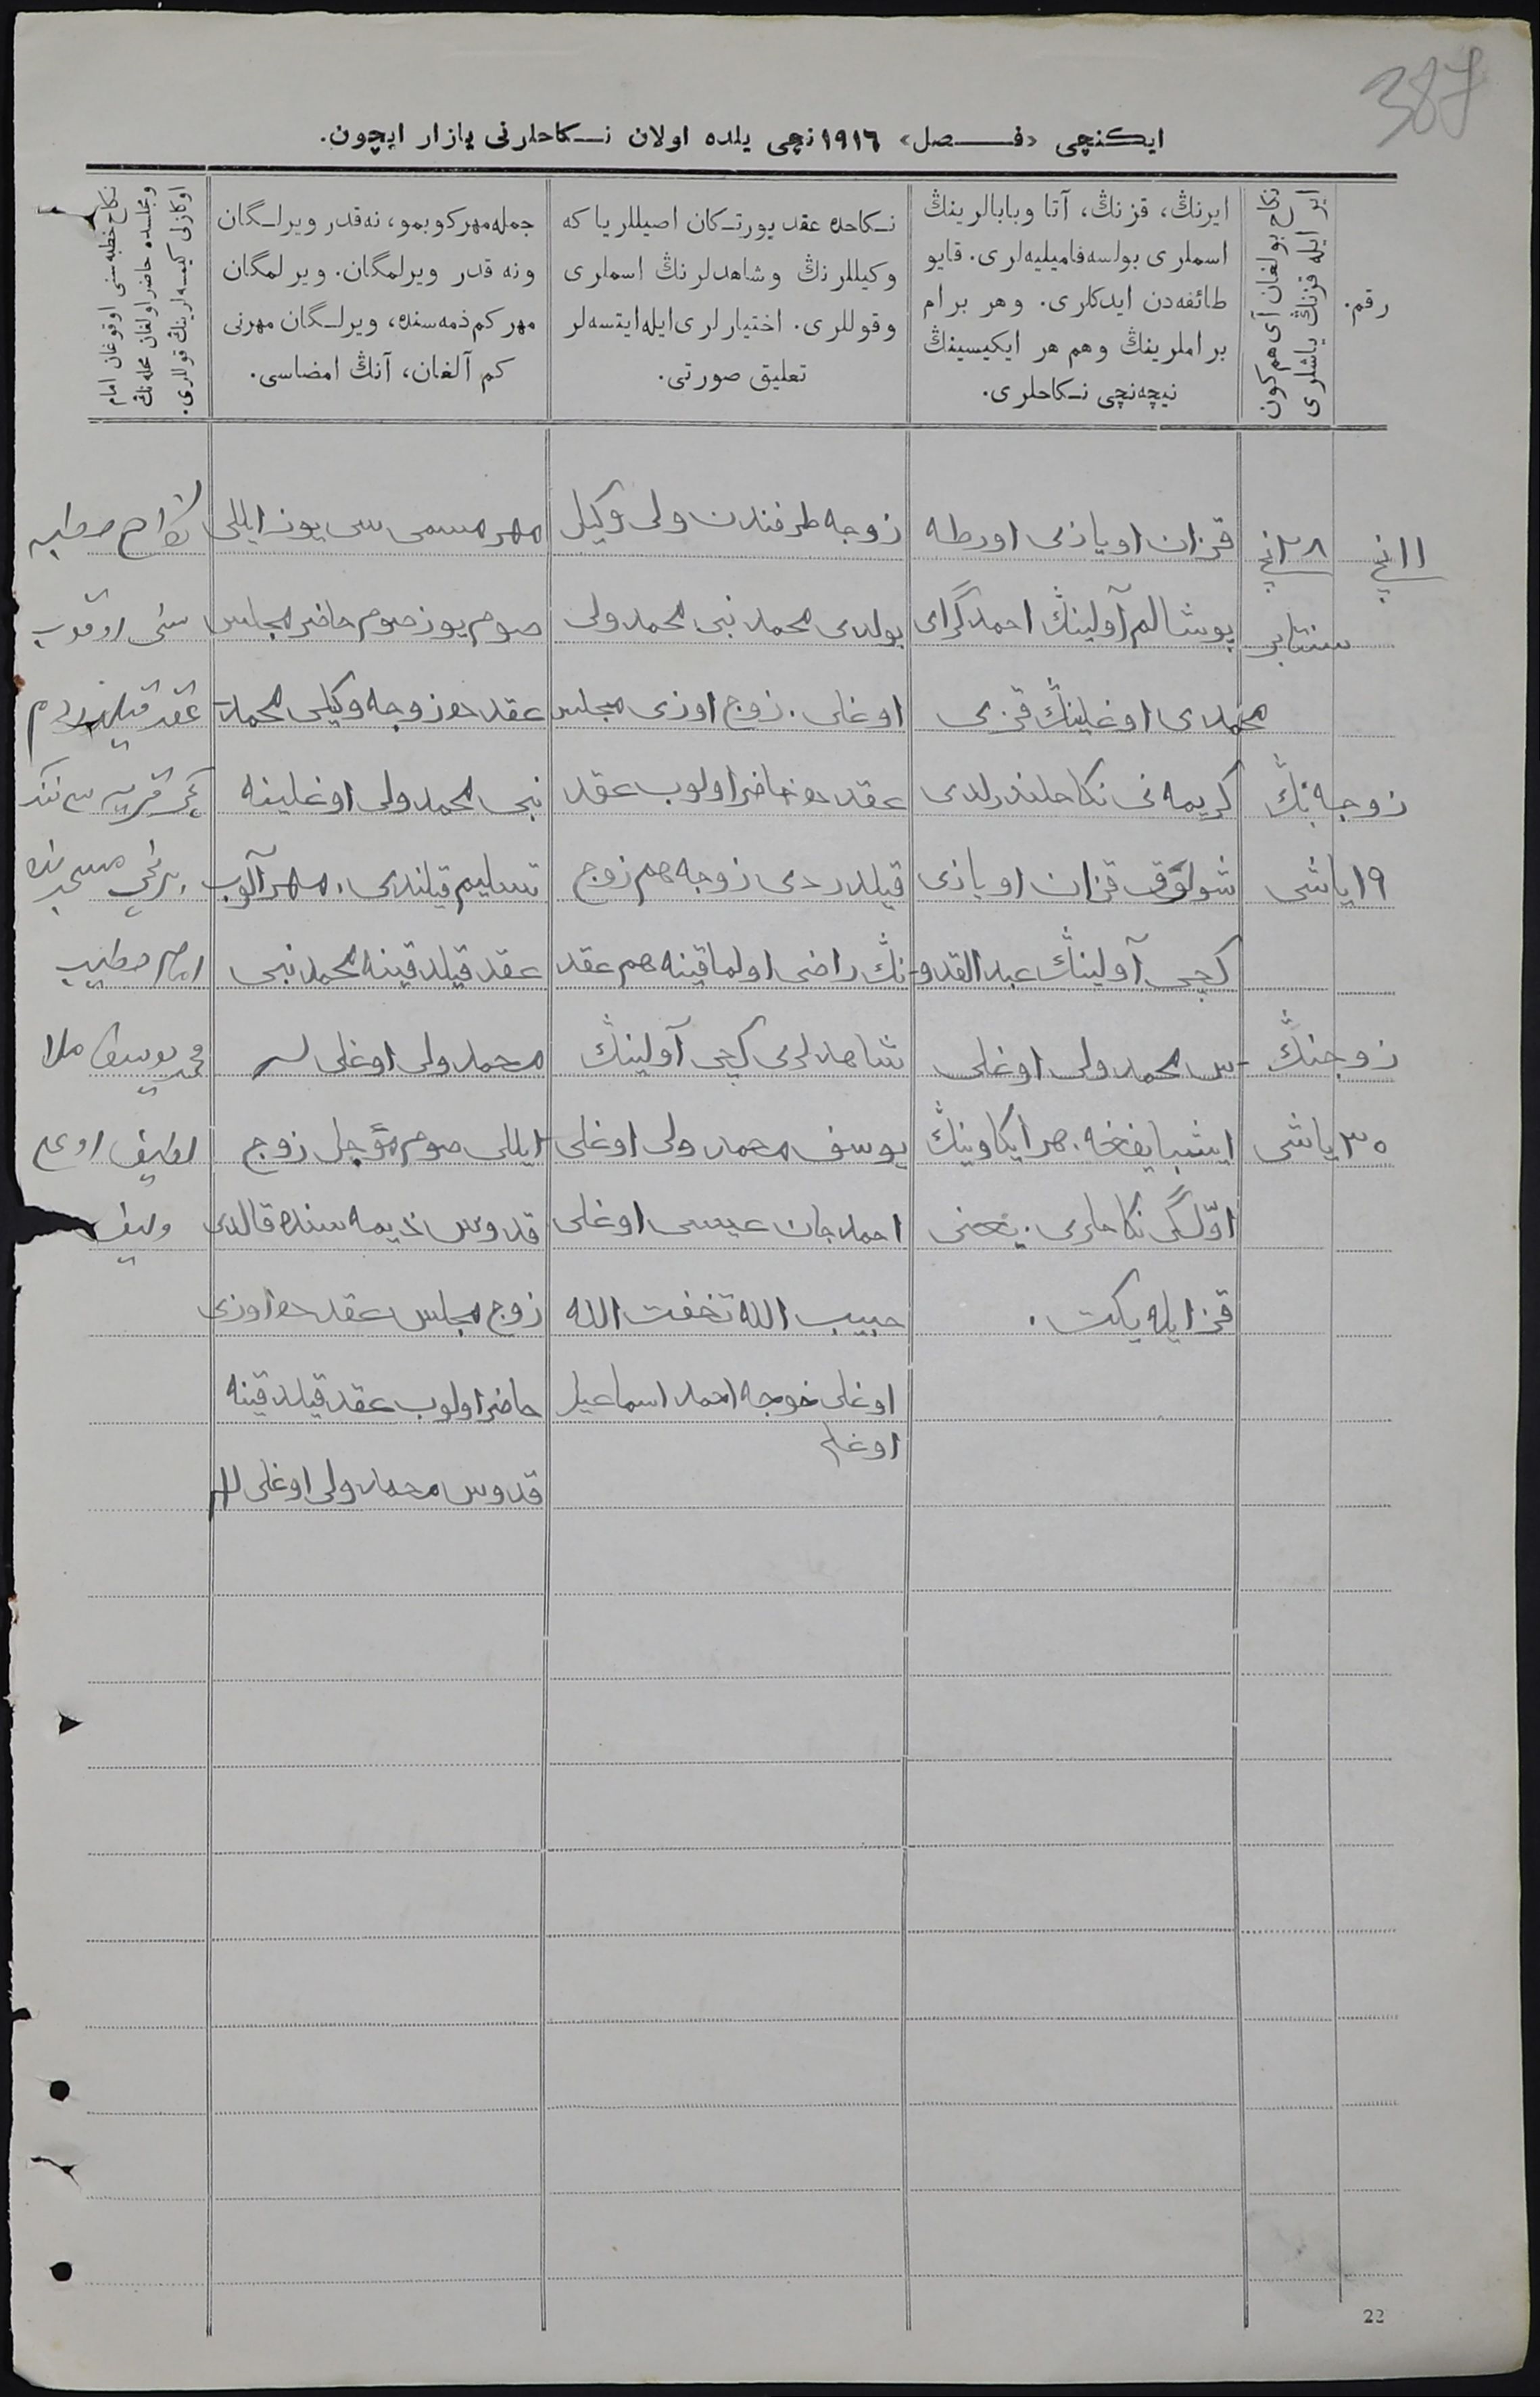 387
ایکنچی «فصل» ١٩١٦ نچی یلده اولان نکاحلرنی یازار ایچون.
رقم.
نکاح بولغان آی هم کون
ایر ایله قزنڭ یاشلری
ایرنڭ، قزنڭ، آتا وبابالرینڭ
اسملری بولسه فامیلیه‌لری. قایو
طائفه‌دن ایدکلری. وهر برام
براملرینڭ وهم هر ایکیسینڭ
نیچه‌نچی نکاحلری.
نکاحده عقد یورتکان اصیللر یا که
وکیللرنڭ وشاهدلرنڭ اسملری
وقوللری. اختیارلری ایله ایتسه‌لر
تعلیق صورتی.
جمله مهر کوبمو، نه‌قدر ویرلگان
ونه قدر ویرلمگان. ویرلمگان
مهر کم ذمه‌سنده، ویرلگان مهرنی
کم آلغان، آنڭ امضاسی.
نکاح خطبه‌سنی اوقوغان امام
ومجلسده حاضر اولغان محله‌نڭ
اوکازلی کیمسه‌لرینڭ قوللری.
١١ نچی
٢٨ نچی
سنتابر
زوجه‌نڭ
١٩ یاشی
زوجنڭ
٣٠ یاشی
قزان اویازی اورطه
پوشالم آولینڭ احمدگرای
محمدی اوغلینڭ قزی
کریمه‌نی نکاحلندرلدی
شولوق قزان اویازی
کچی آولینڭ عبدالقدو-
-س محمدولی اوغلی
ایشبایفغه. هر ایکاوینڭ
اوّلگی نکاحلری. یعنی
قز ایله یکت.
زوجه طرفندن ولی وکیل
بولدی محمدنبی محمدولی
اوغلی. زوج اوزی مجلس
عقدده حاضر اولوب عقد
قیلدردی زوجه هم زوج
نڭ راضی اولماقینه هم عقد
شاهدلری کچی آولینڭ
یوسف محمدولی اوغلی
احمدجان عیسی اوغلی
حبیب الله تخفت الله
اوغلی خوجه احمد اسماعیل
اوغلی
مهر مسمی سی یوز ایللی
صوم یوز صوم حاضر مجلس
عقدده زوجه وکیلی محمد-
نبی محمدولی اوغلینه
تسلیم قیلندی. مهر آلوب
عقد قیلدقینه محمدنبی
محمدولی اوغلی
ایللی صوم مؤجل زوج
قدوس ذیمه‌سنده قالدی
زوج مجلس عقدده اوزی
حاضر اولوب عقد قیلدقینه
قدوس محمدولی اوغلی
نکاح خطبه
سنی اوقوب
عقد قیلدردم
کچی قریه سی ننڭ
برنچی مسجدنده
امام خطیب
محمد یوسف ملا
لطیف اوغلی
22